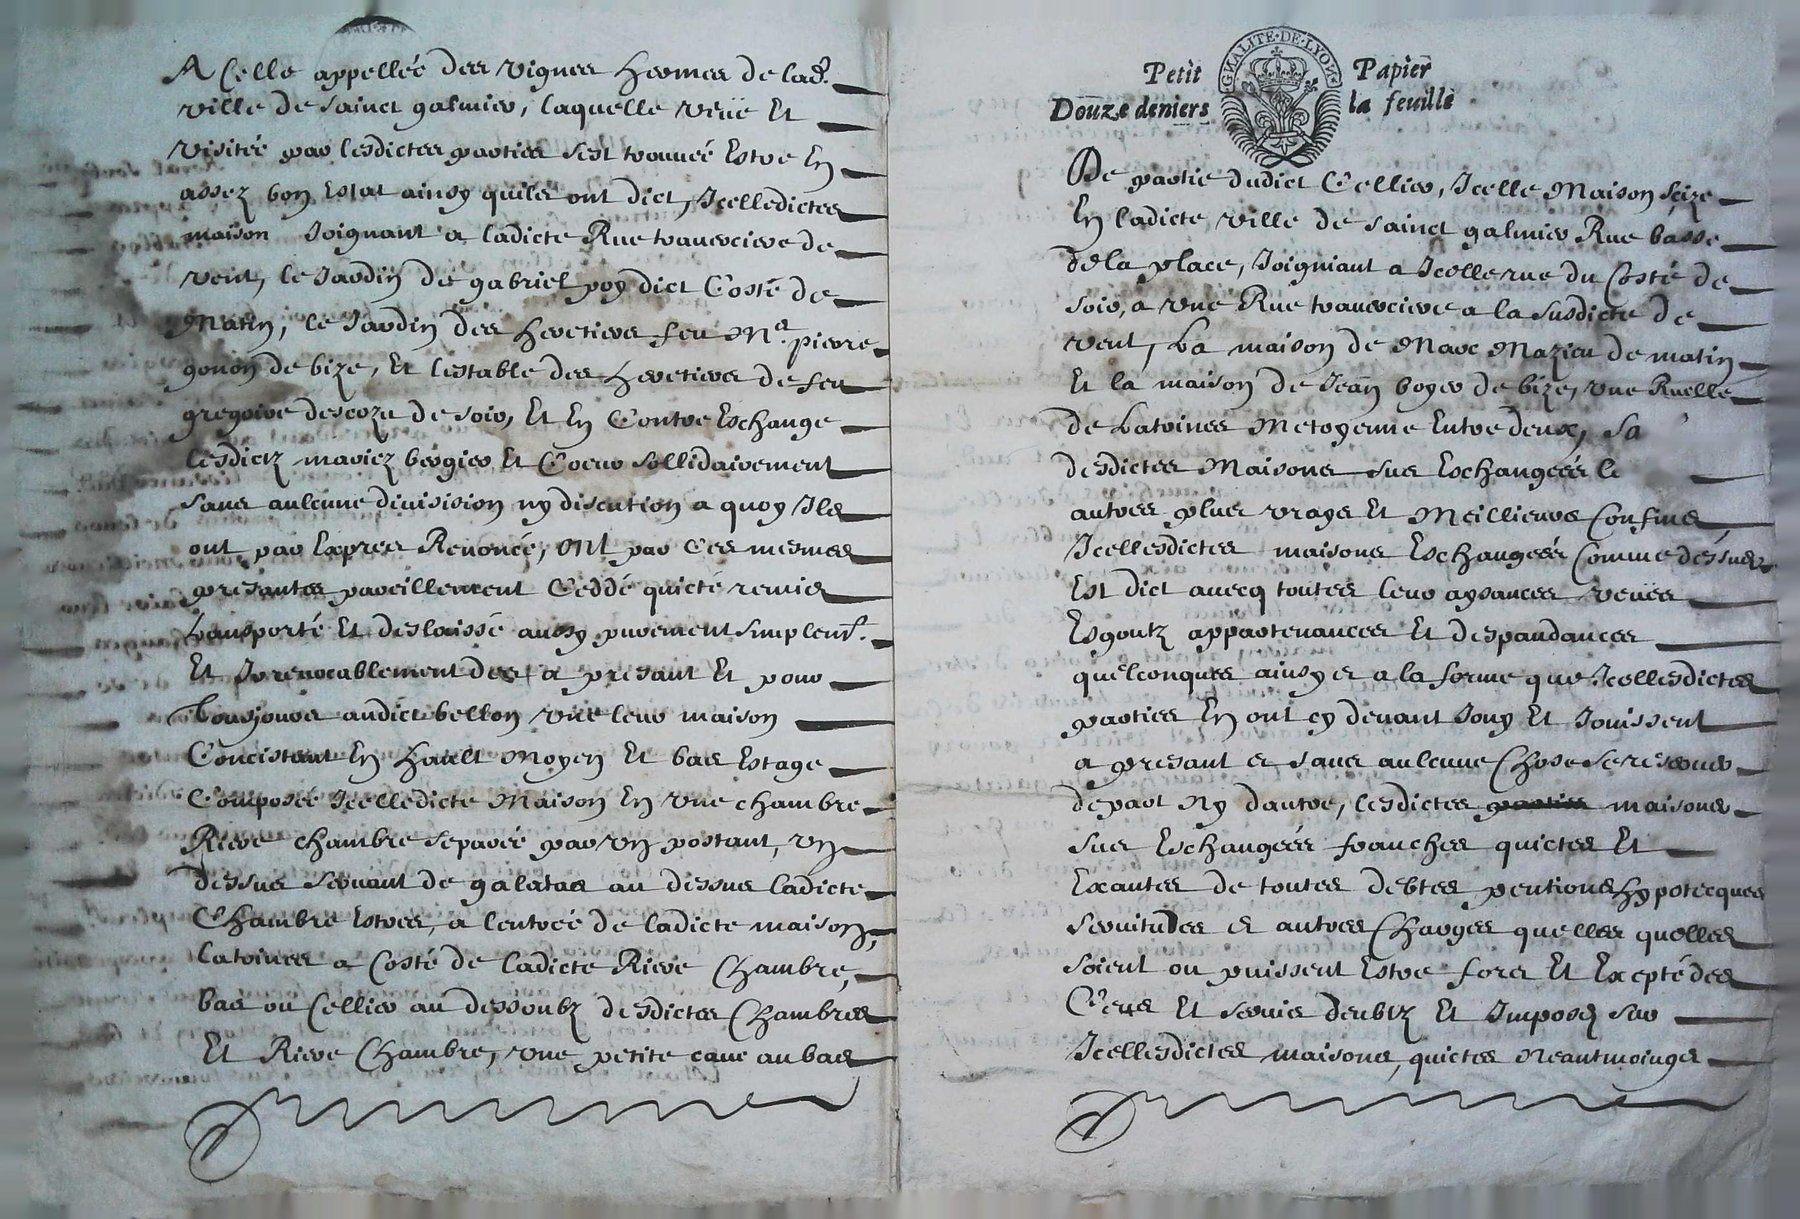 A Celle appellée des vignes hermes de lad.
ville de Sainct galmier, laquelle veüe Et
visitée par lesdictes parties sest trouuée Estre En
assez bon Estat ainsy quils ont dict, Icelledictes
maison Joignant a ladicte Rue trauerciere de
vent, le Jardin de gabriel poy dict Costé de
Matin, le Jardin des heretiers feu Mr. pierre
gonon de bize, Et lestable des heretiers de feu
gregoire descozu de soir, Et En Contre Eschange
lesdictz mariez bergier Et Coeur sollidairement
sans aulcune diuisision ny discution a quoy Ils
ont par Expres Renoncé, Ont par Ces mesmes
presantes pareillement Ceddé quicté remis
transporté Et deslaissé aussy purement simplemt.
Et Irreuocablement des a presant Et pour
Tousjours audict bellon vne leur maison
Concistant En hault Moyen Et bas Estage
Composée Icelledicte Maison En vne chambre
Riere chambre separée par vn postant, vn
dessus seruant de galatas au dessus ladicte
Chambre Estres, a lentrée de ladicte maison,
latrines a Costé de ladicte Riere Chambre,
bas ou Cellier au dessoubz desdictes Chambres
Et Riere Chambre, vne petite caue au bas
GNALITE·DE·LYON
Petit Papier
Douze deniers la feuille
De partie dudict Cellier, Icelle Maison seize
En ladicte ville de Sainct galmier Rue basse
de la place, Joigniant a Icelle rue du Costé de
soir, a vne Rue trauerciere a la susdicte de
vent, La maison de Marc Mazieu de matin
Et la maison de Jean boyer de bize, vne Ruelle
de Latrines Metoyenne Entre deux, Sa
desdictes Maisons sus Eschangées le
autres plus vrays Et Meillieurs Confins
Icellesdictes maisons Eschangées Comme dessus
Est dict auecq toutes leur aysances veües
Esgoutz appartenances Et despandances
quelconques ainsy & a la forme que Icellesdictes
parties En ont cy deuant Jouy Et Jouissent
a presant & sans aulcune Chose se reseruer
de part Ny dautre, lesdictes parties maisons
sus Eschangées franches quictes Et
Exantes de toutes debtes pentions hypotecques
seruitudes & autres Charges quelles quelles
soient ou puissent Estre fors Et Excepté des
Cens Et seruis deubtz Et Imposés sur
Icellesdictes maisons, quictes Neantmoings